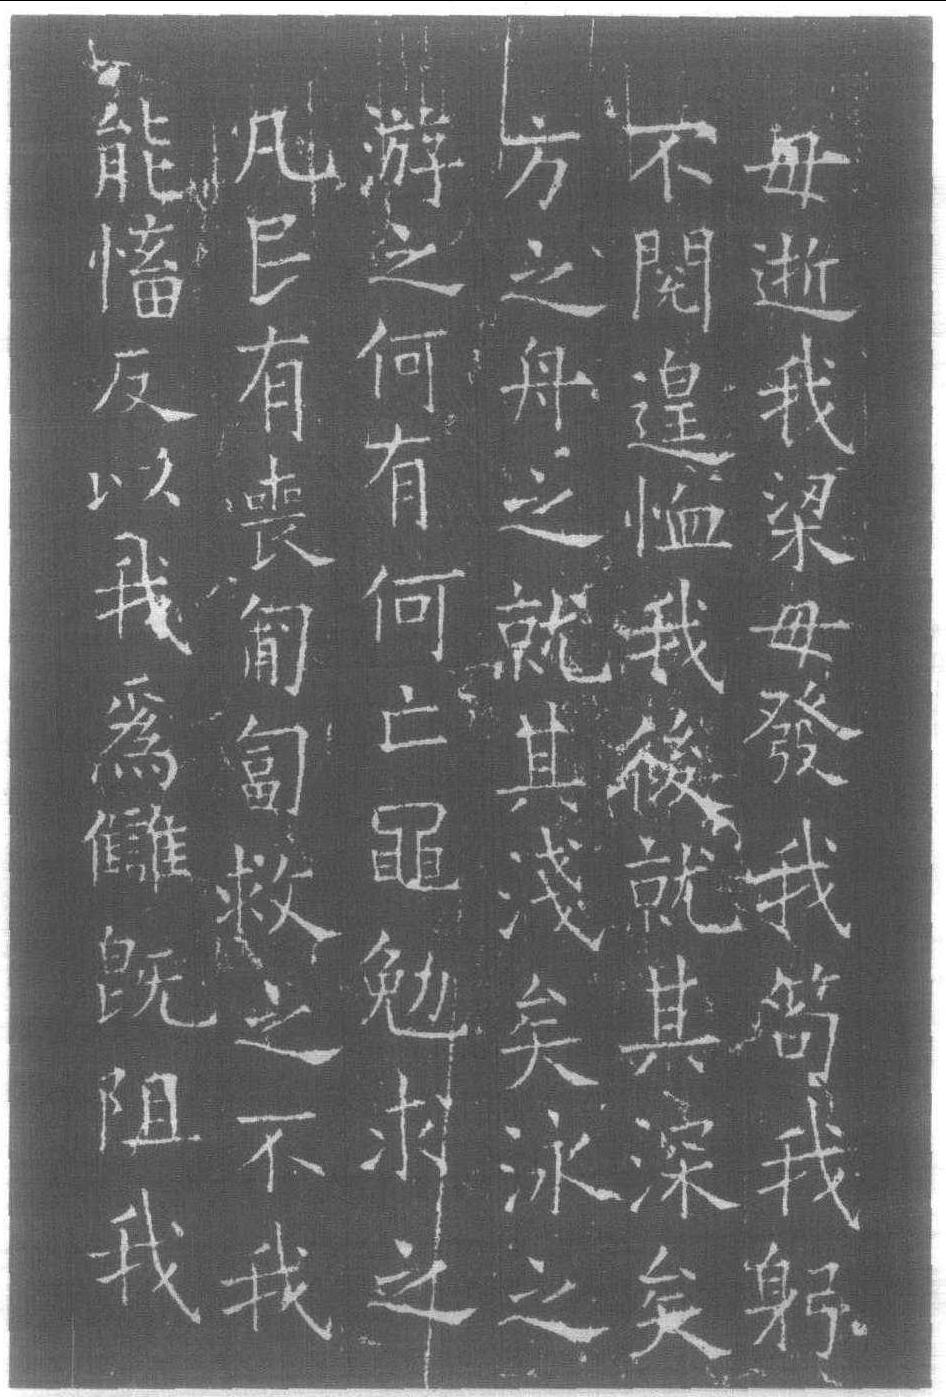 毋逝我梁毋發我笱我躬
不閱遑恤我後就其深矣
方之舟之就其淺矣泳之
游之何有何亡黽勉求之
凡民有喪匍匐救之不我
能慉反以我為讎既阻我